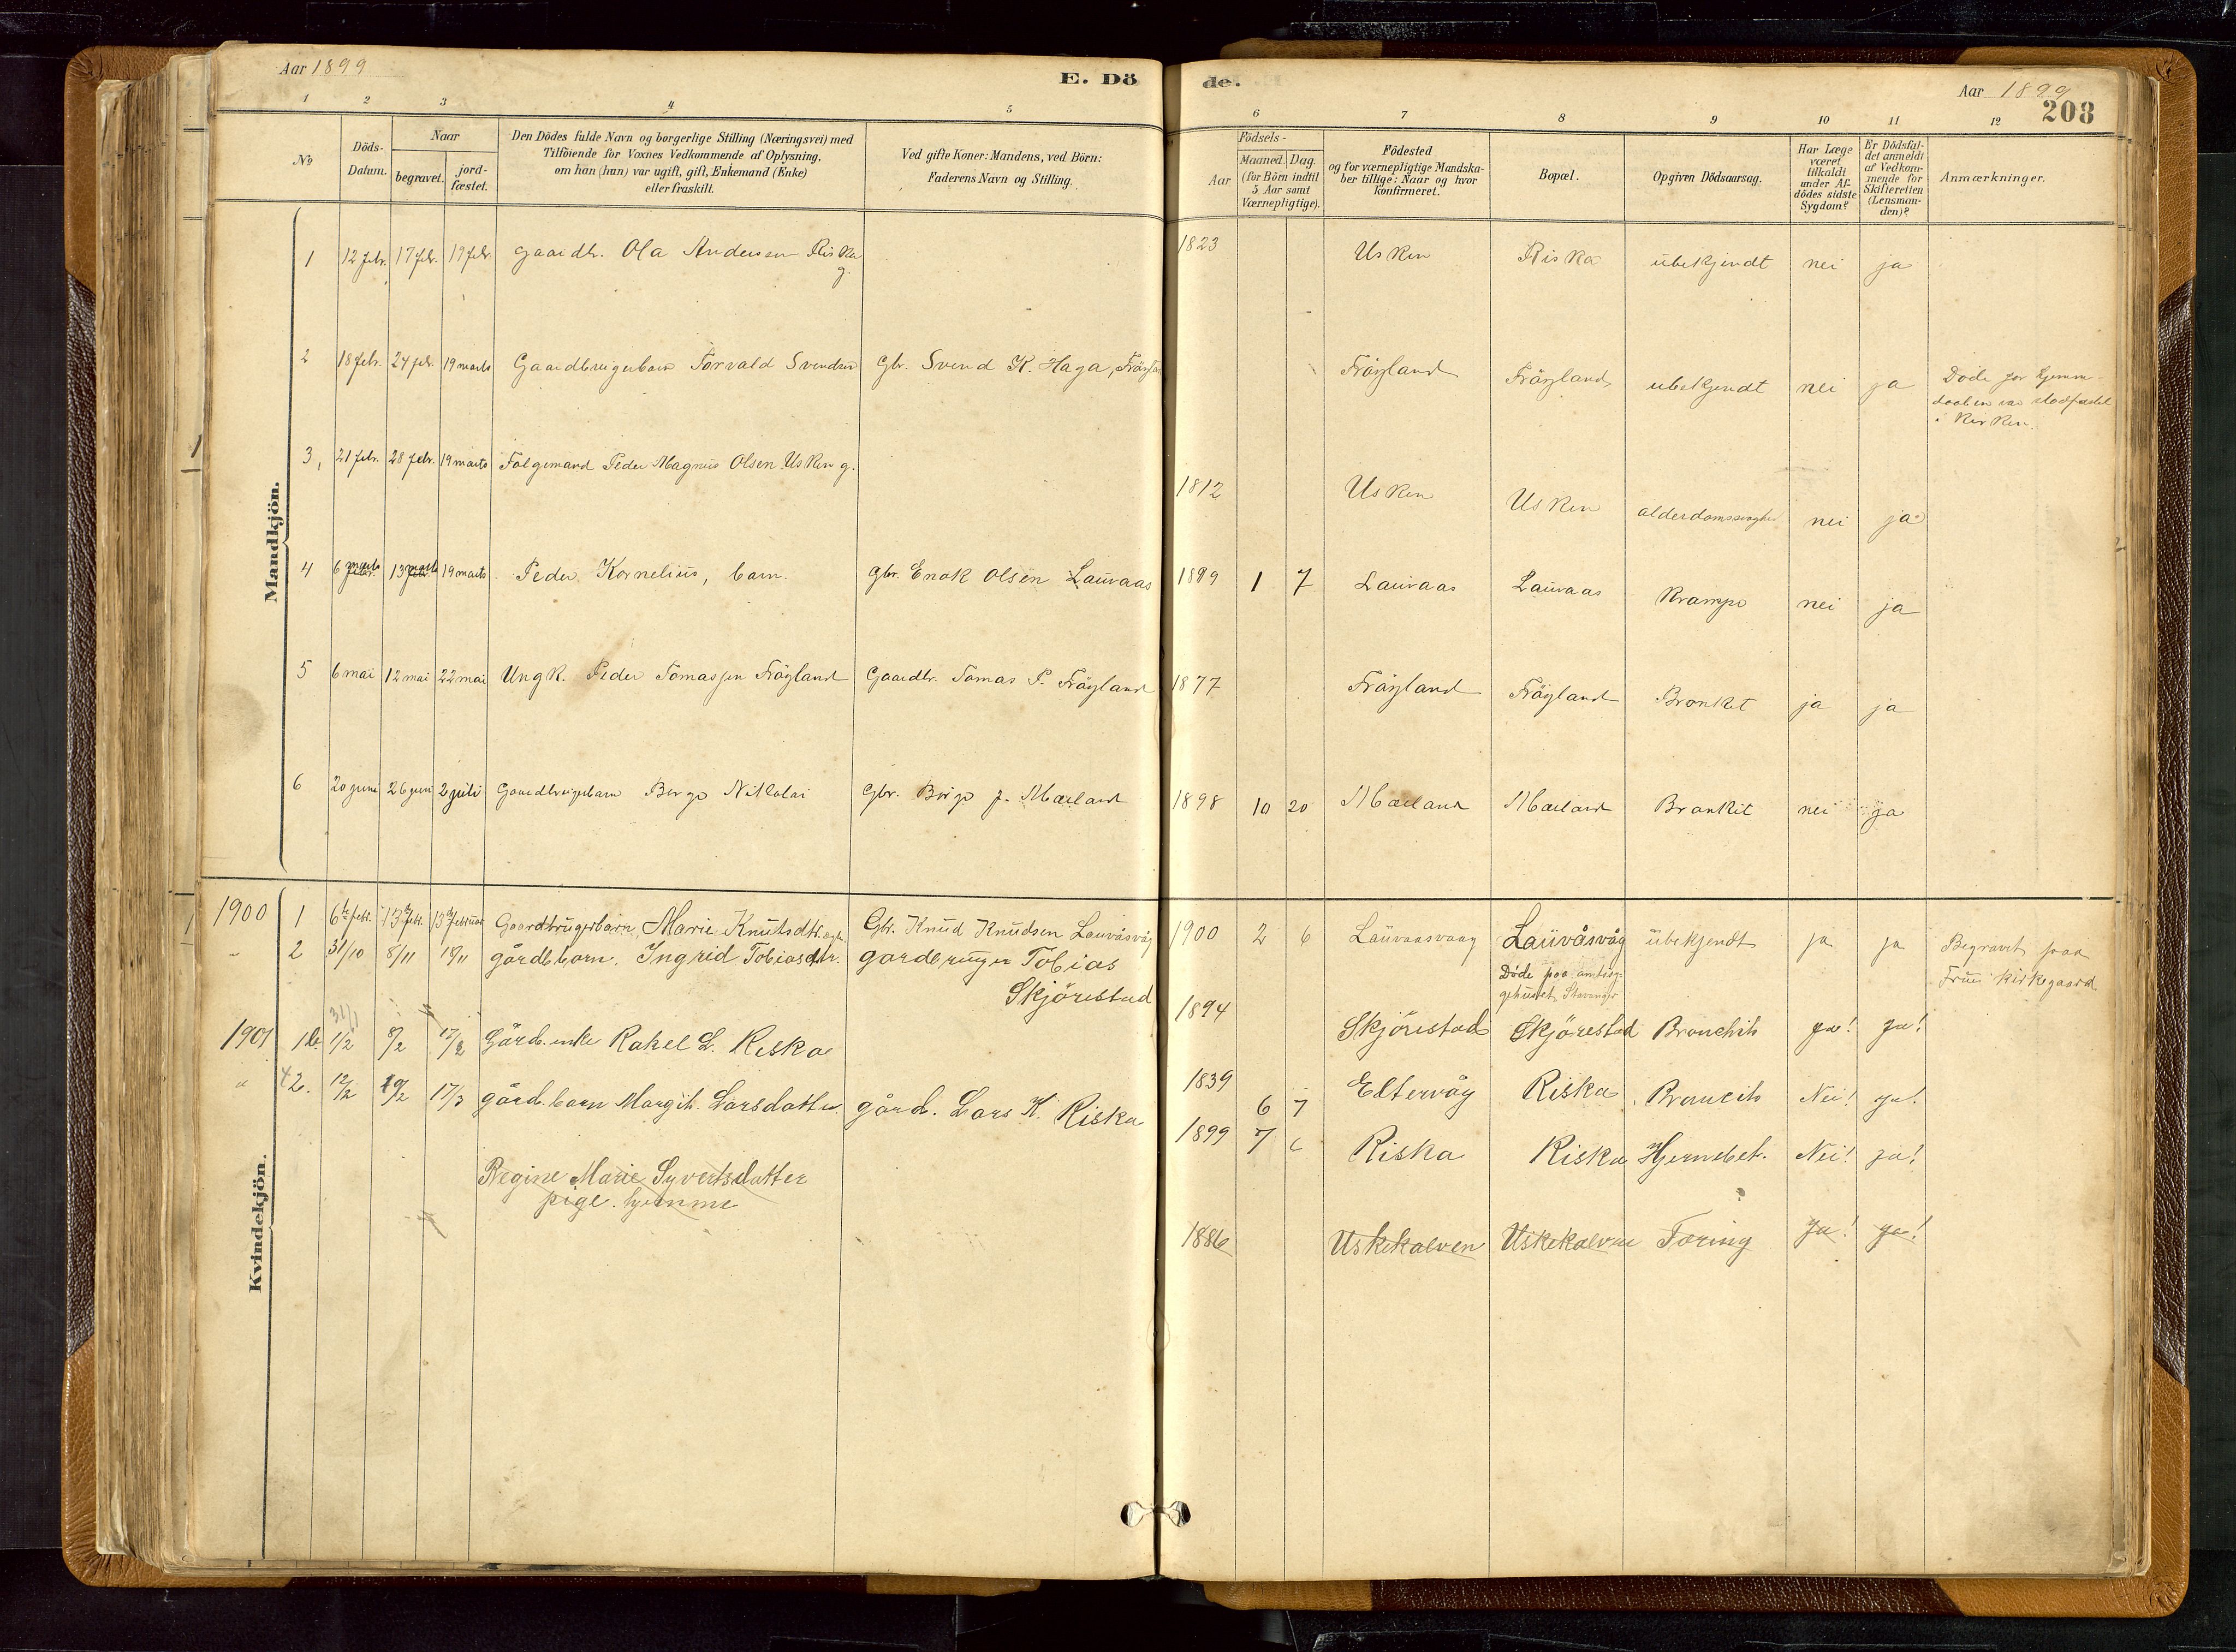 Aar 1899
E. Dö
de.
Aar 1899
208
1 2 3 4 5 6 7 8 9 10 11 12
№
Döds-Datum.
Naar
begravet.
jord-fæstet.
Den Dödes fulde Navn og borgerlige Stilling (Næringsvei) med
Tilföiende for Voxnes Vedkommende af Oplysning,
om han (hun) var ugift, gift, Enkemand (Enke)
eller fraskilt.
Ved gifte Koner: Mandens, ved Börn:
Faderens Navn og Stilling.
Födsels-
Aar
Maaned. Dag.
(for Börn indtil
5 Aar samt
Værnepligtige).
Födested
og for værnepligtige Mandska-
ber tillige: Naar og hvor
konfirmeret.
Bopæl.
Opgiven Dödsaarsag.
Har Læge
været
tilkaldt
under Af-
dödes sidste
Sygdom?
Er Dödsfal-
det anmeldt
af Vedkom-
mende for
Skifteretten
(Lensman-
den)?
Anmærkninger.
Mandkjön.
1 12 febr. 17 febr. 19 febr. Gaardbr. Ola Andersen Riska g. 1823 Usken Riska ubekjendt nei ja
2 18 febr. 24 febr. 19 marts Gaardbrugerbarn Torvald Svendsen Gbr. Svend K. Haga, Fröyland Fröyland Fröyland ubekjendt nei ja Döde for hjemme-
daaben var stadfæstet
i Kirken.
3 21 febr. 28 febr. 19 marts Folgemand Peder Magnus Olsen Usken g. 1812 Usken Usken alderdomssvaghed nei ja
4 6 marts 13 marts 19 marts Peder Kornelius, barn. Gbr. Enok Olsen Lauvaas 1899 1 7 Lauvaas Lauvaas Krampe nei ja
5 6 mai 12 mai 22 mai Ungk. Peder Tomassen Fröyland Gaardbr. Tomas P. Fröyland 1877 Fröyland Fröyland Bronket ja ja
6 20 juni 26 juni 2 juli Gaardbrugerbarn Berge Nikolai Gbr. Börge J. Mæland 1898 10 20 Mæland Mæland Bronkit nei ja
Kvindekjön.
1900 1 6te febr. 13de febr. 13de februar Gaardbrugerbarn Marie Knutsdtr. Gbr. Knud Knudsen Lauvåsvåg 1900 2 6 Lauvaasvaag Lauvåsvåg ubekjendt ja ja Begravet paa
Frue Kirkegaard
" 2 31/10 8/11 18/11 gårdb.barn. Ingrid Tobiasdtr. gardbruger Tobias
Skjörestad 1894 Skjörestad Döde paa amtssy-
gehuset, Stavanger
Skjörestad Bronchit ja! ja!
1901 1. 31/1 1/2 8/2 17/2 Gård. enke Rakel L. Riska 1839 Eltervåg Riska Broncit Nei! ja!
" 2. 12/2 19/2 17/3 gård. barn Margit. Larsdatter gård. Lars K. Riska 6 7 1899 7 6 Riska Riska Hjernebet. Nei! ja!
Regine Marie Syvertsdatter
pige. hjemme 1886 Uskekalven Uskekalven Tæring ja! ja!